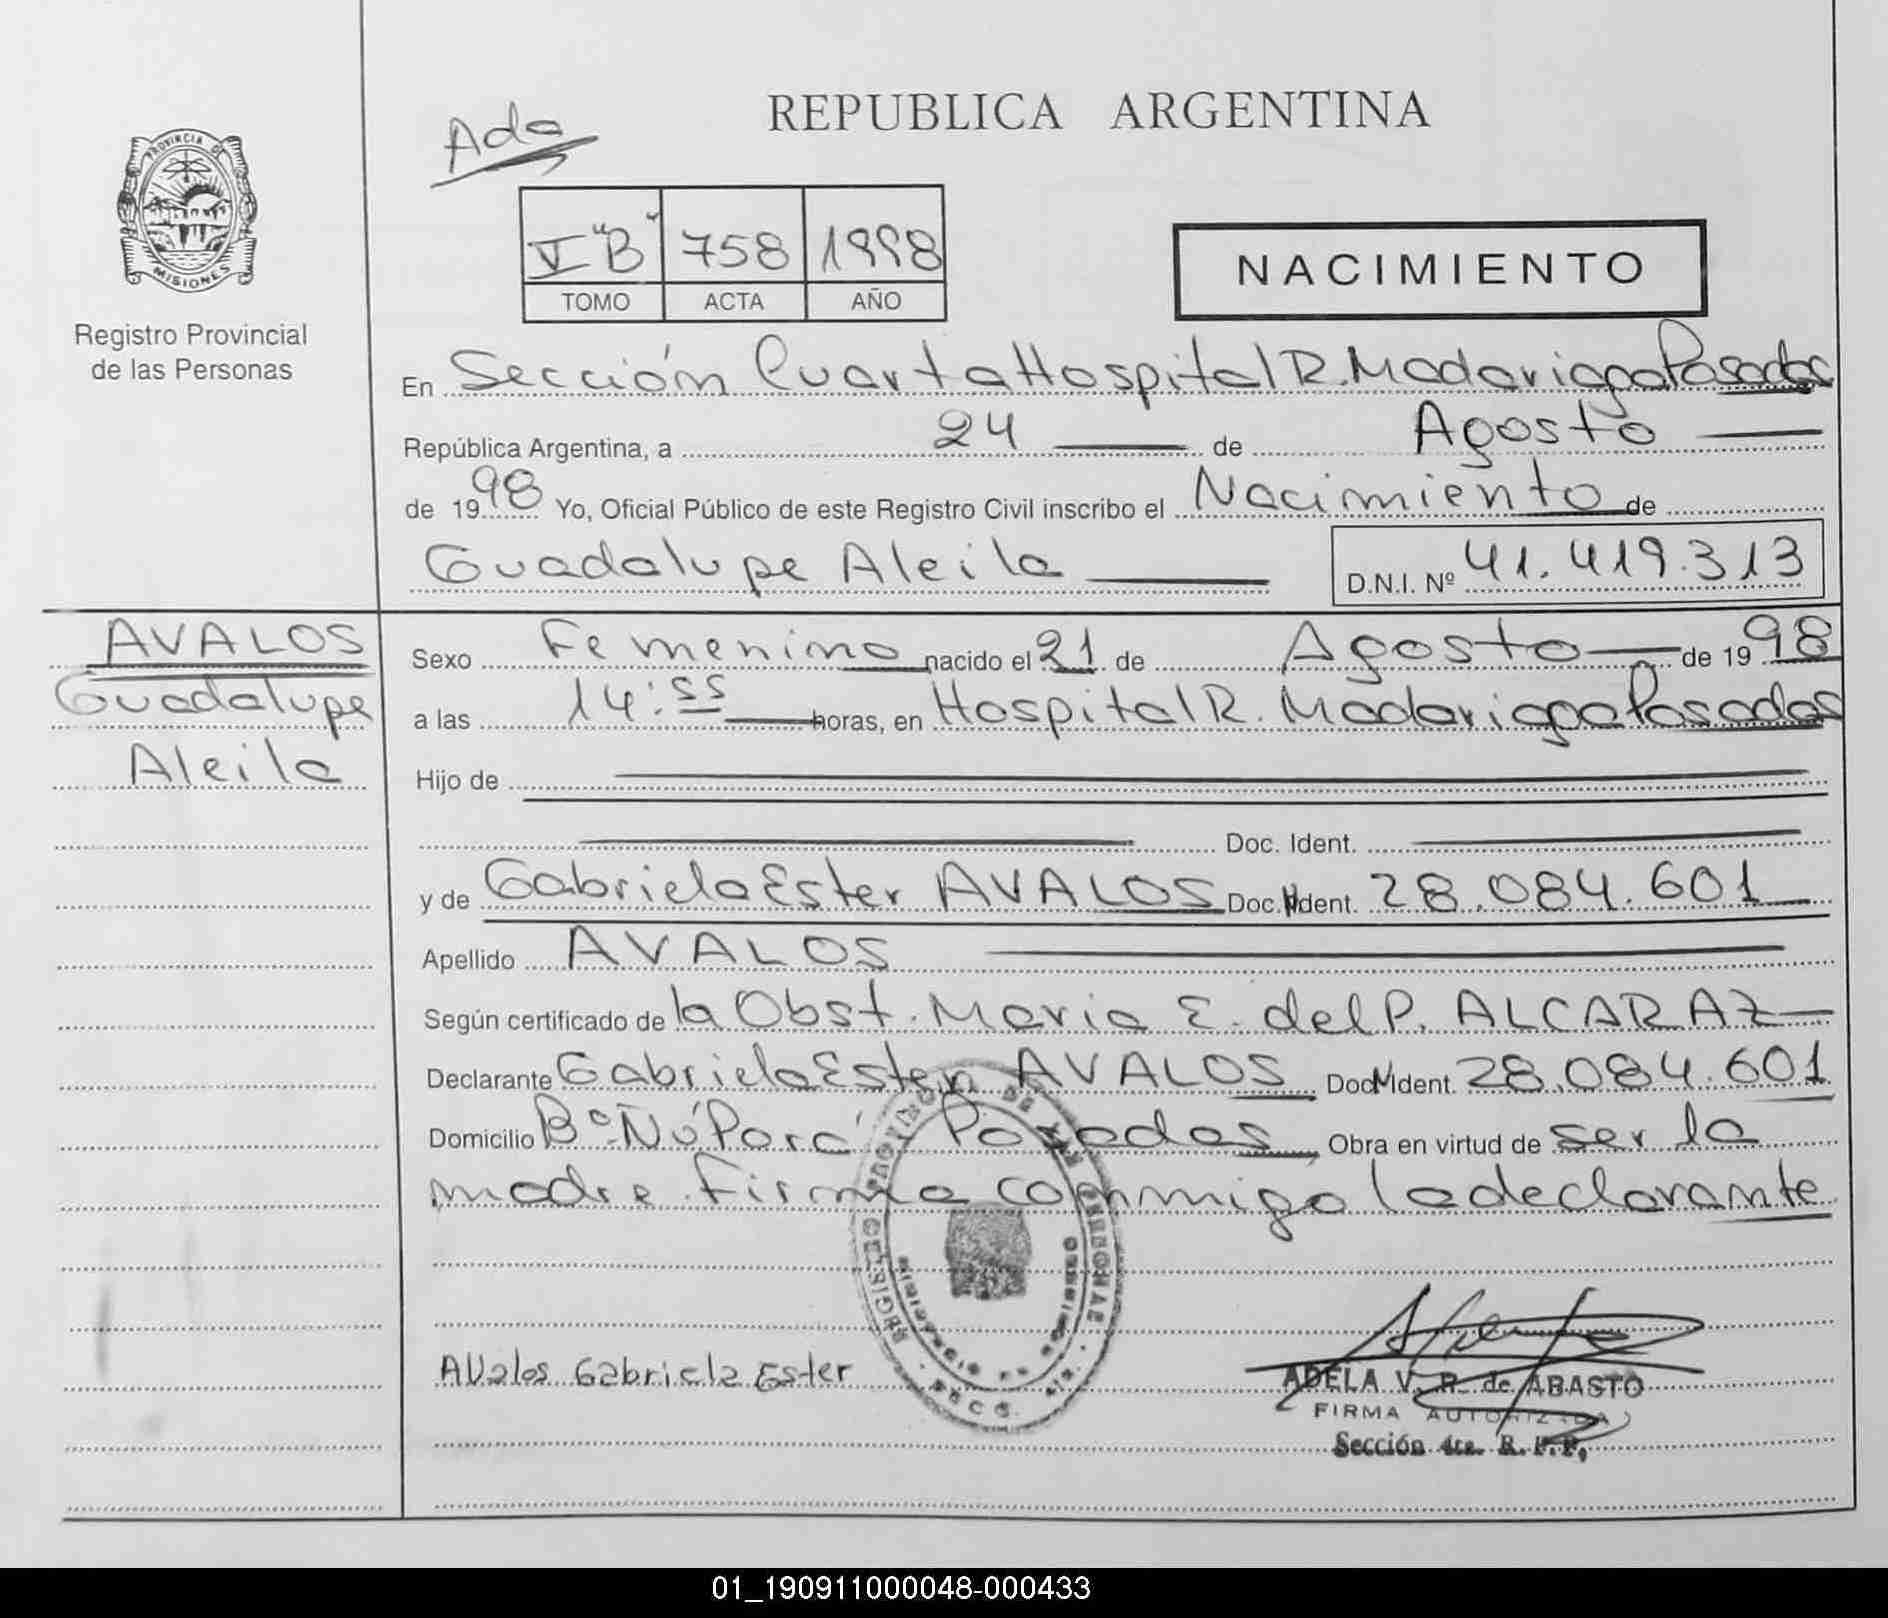 REPUBLICA ARGENTINA
Ada
PROVINCIA D
MISIONES
Registro Provincial
de las Personas
V "B" 758 1998
TOMO ACTA AÑO
NACIMIENTO
En Sección Cuarta Hospital R. Madariaga Posadas
República Argentina, a 24 de Agosto
de 1998 Yo, Oficial Público de este Registro Civil inscribo el Nacimiento de
Guadalupe Aleila D.N.I. Nº 41.419.313
AVALOS
Guadalupe
Aleila
Sexo Femenino nacido el 21 de Agosto de 1998
a las 14:55 horas, en Hospital R. Madariaga Posadas
Hijo de
Doc. Ident.
y de Gabriela Ester AVALOS Doc. Ident. 28.084.601
Apellido AVALOS
Según certificado de la Obst. Maria E. del P. ALCARAZ
Declarante Gabriela Ester AVALOS Doc. Ident. 28.084.601
Domicilio Bº Ñú Porá Posadas Obra en virtud de ser la
madre. Firma conmigo la declarante
REGISTRO PROVINCIAL DE LAS PERSONAS
AValos Gabriela Ester
ADELA V. R. de ABASTO
FIRMA AUTORIZADA
Sección 4ta. R. P. P.
01_190911000048-000433